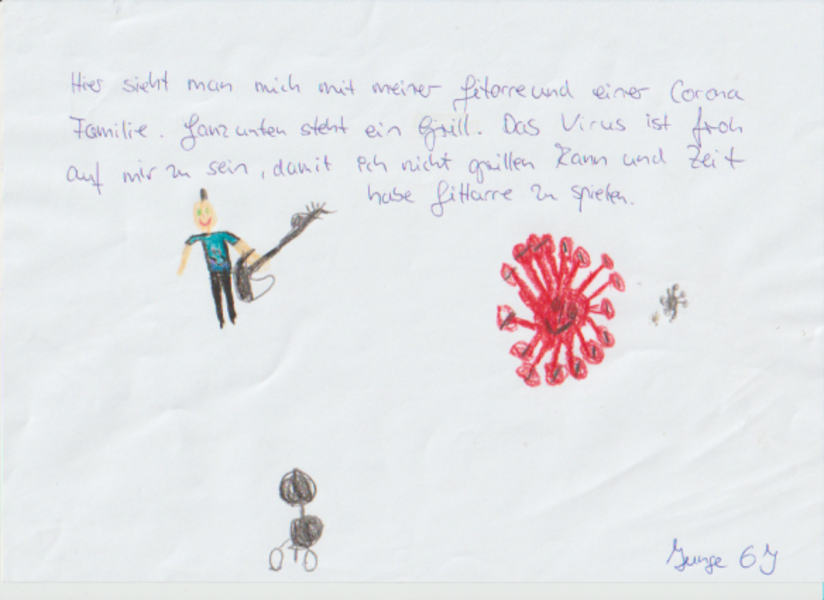 Hier sieht man mich mit meiner Gitarre und einer Corona
Familie. Ganz unten steht ein Grill. Das Virus ist froh
auf mir zu sein, damit ich nicht grillen kann und Zeit
habe Gittarre zu spielen.
Junge 6J